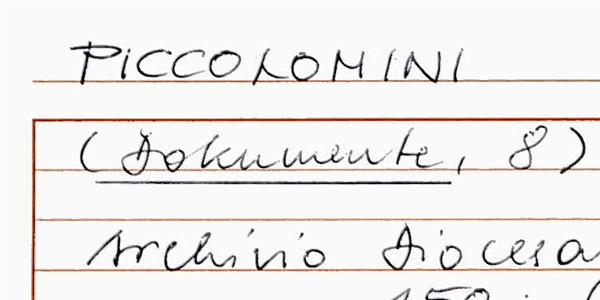 PICCOLOMINI
(Dokumente, 8)
Archivio Diocesa